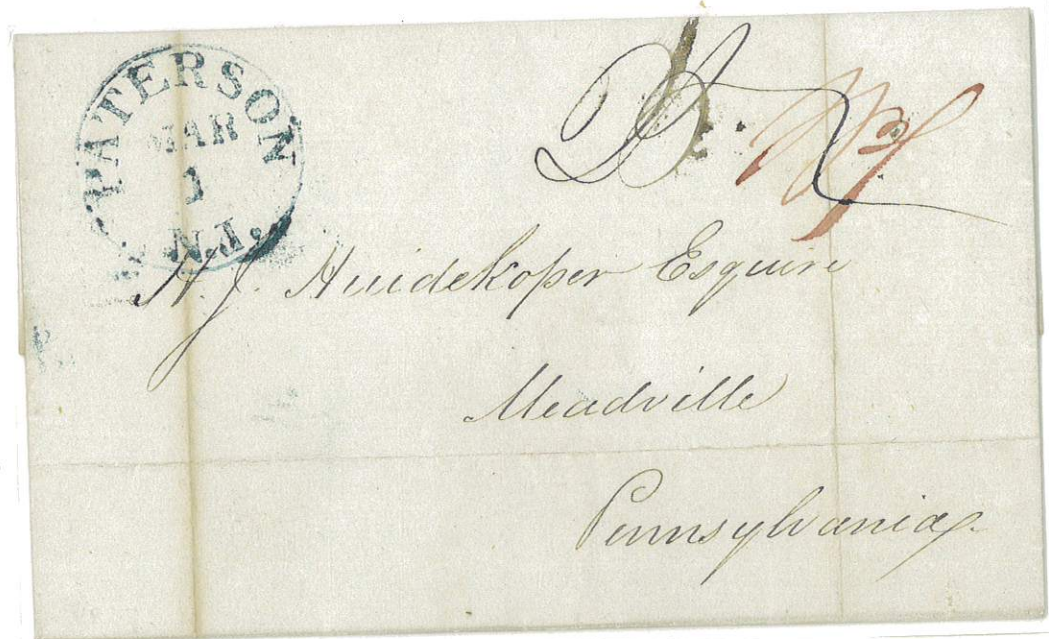 PATERSON
MAR
1
N.J.
H. J. Huidekoper Esquire
Meadville
Pennsylvania